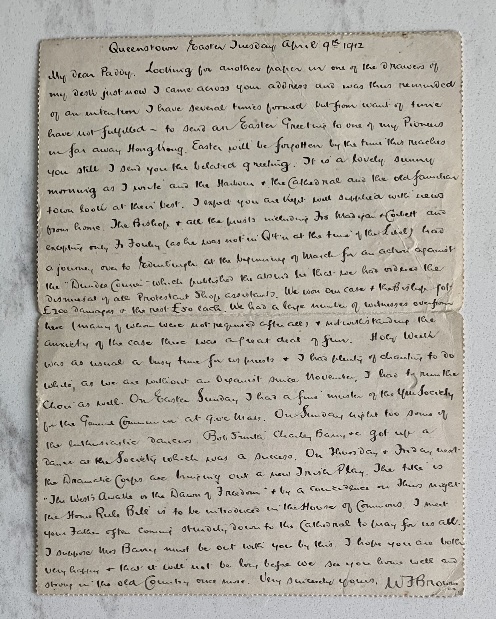 Queenstown Easter Tuesday April 9th 1912
My dear Paddy. Looking for another paper in one of the drawers of
my desk just now I came across your address and was thus reminded
of an intention I have several times formed but from want of time
have not fulfilled – to send an Easter Greeting to one of my Pioneers
in far away Hong Kong. Easter will be forgotten by the time this reaches
you still I send you the belated greeting. It is a lovely sunny
morning as I write and the Harbour & the Cathedral and the old familiar
town look at their best. I expect you are kept well supplied with news
from home. The Bishop & all the priests including Frs Madigan & Corbett and
excepting only Fr Fouley (as he was not in Q'town at the time of the Libel) had
a journey over to Edinburgh at the beginning of March for an action against
the "Dundee Courier" which published the absurd lie that we had ordered the
dismissal of all Protestant Shop assistants. We won our case & the Bishop got
£200 damages & the rest £50 each. We had a large number of witnesses over from
here (many of whom were not required after all) & notwithstanding the
anxiety of the case there was a great deal of fun. Holy Week
was as usual a busy time for us priests & I had plenty of chanting to do
while, as we are without an organist since November, I had to run the
Choir as well. On Easter Sunday I had a fine muster of the Y.M. Society
for the General Communion at 9 o/c Mass. On Sunday night too some of
the enthusiastic dancers Bob Charley Barry & Co got up a
dance at the Society which was a success. On Thursday & Friday next
the Dramatic Corps are bringing out a new Irish Play. The title is
"The West's Awake or the Dawn of Freedom" & by a coincidence on Thurs night
the Home Rule Bill is to be introduced in the House of Commons. I meet
your Father often coming sturdily down to the Cathedral to pray for us all.
I suppose Mrs Barry must be out with you by this. I hope you are both
very happy & that it will not be long before we see you home well and
strong in the old Country once more. Very sincerely yours, W F Browne